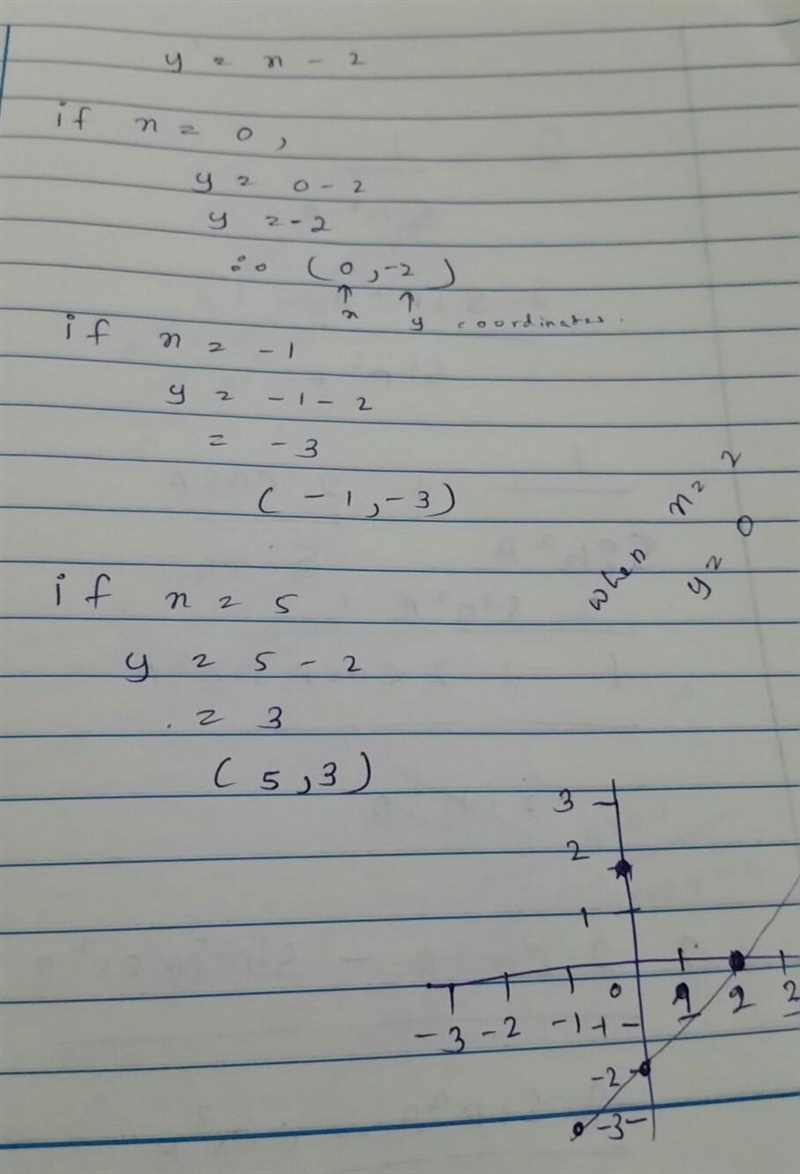 y = n - 2
if n = 0,
y = 0 - 2
y = -2
∴ (0, -2)
↑ ↑
n y coordinates.
if n = -1
y = -1 - 2
= -3
(-1, -3)
when n = 2
y = 0
if n = 5
y = 5 - 2
. = 3
(5, 3)
3
2
1
-3 -2 -1 0 1 2
-2
-3